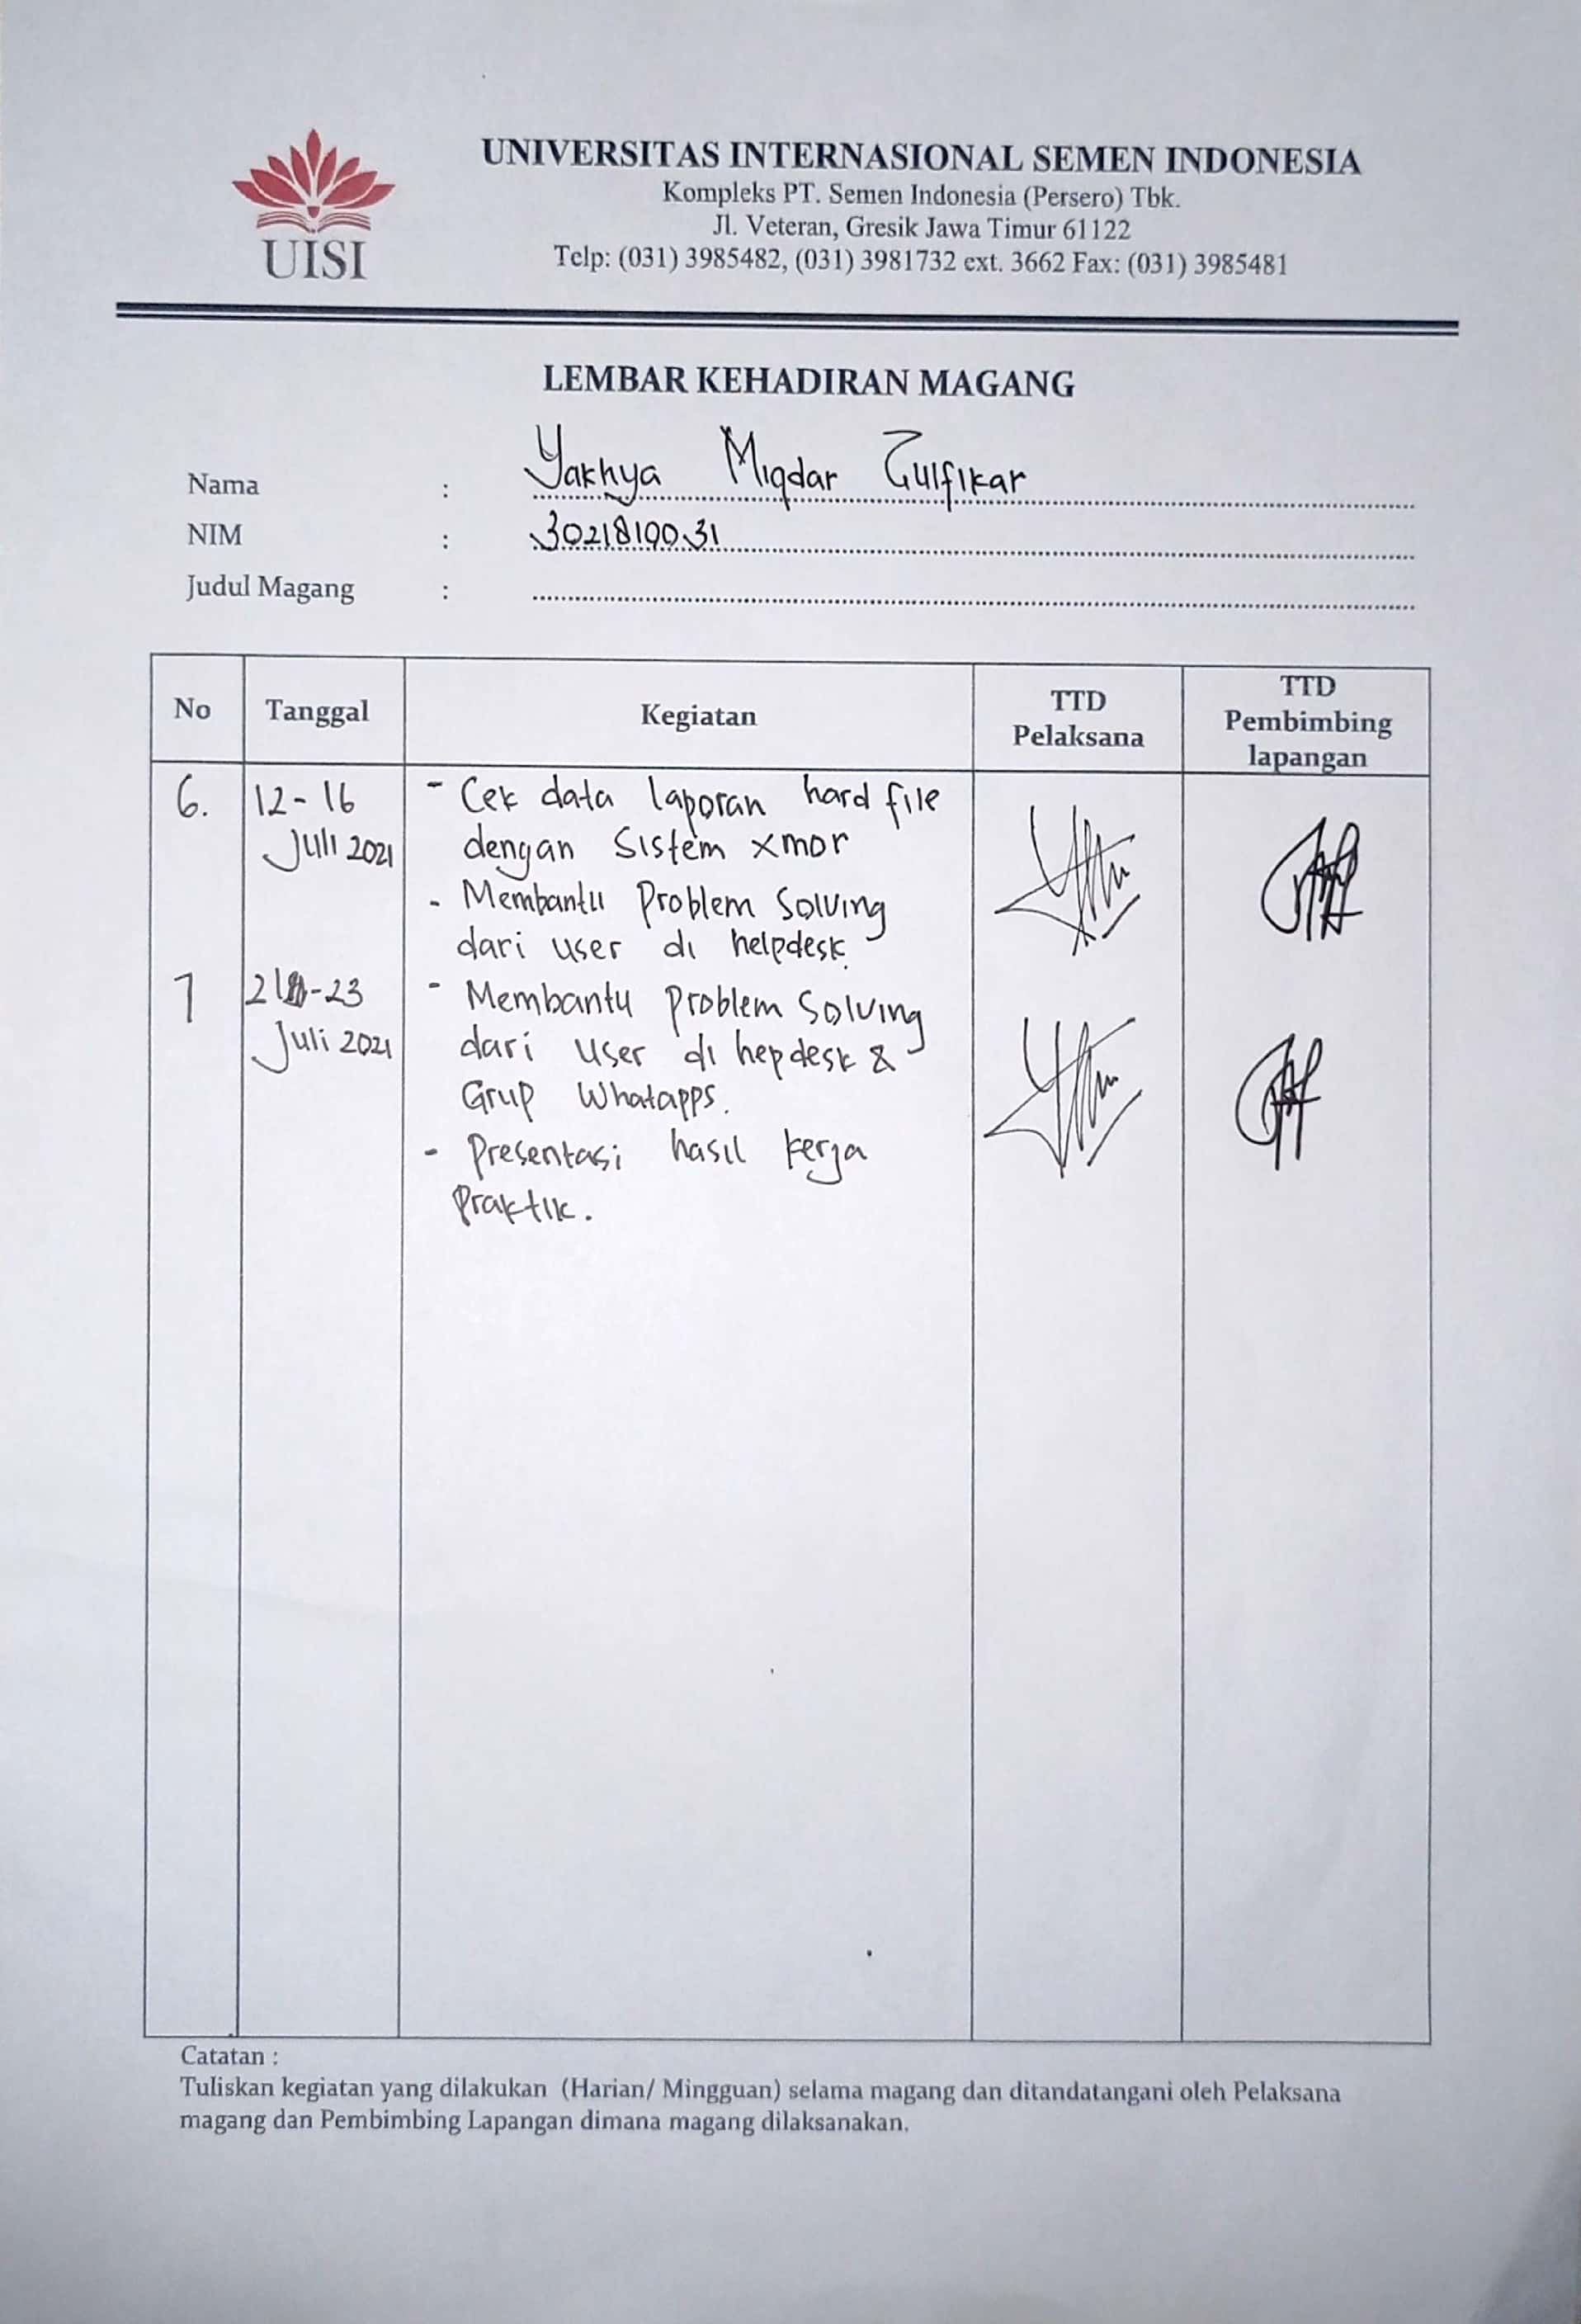 UISI
UNIVERSITAS INTERNASIONAL SEMEN INDONESIA
Kompleks PT. Semen Indonesia (Persero) Tbk.
Jl. Veteran, Gresik Jawa Timur 61122
Telp: (031) 3985482, (031) 3981732 ext. 3662 Fax: (031) 3985481
LEMBAR KEHADIRAN MAGANG
Nama : Yakhya Miqdar Zulfikar
NIM : 3021810031
Judul Magang :
No Tanggal Kegiatan TTD Pelaksana TTD Pembimbing lapangan
6. 12-16 - Cek data laporan hard file
Juli 2021 dengan Sistem xmor
- Membantu Problem Solving
dari user di helpdesk.
7 21-23 - Membantu Problem Solving
Juli 2021 dari user di hepdesk &
Grup Whatapps.
- Presentasi hasil kerja
Praktik.
Catatan :
Tuliskan kegiatan yang dilakukan (Harian/ Mingguan) selama magang dan ditandatangani oleh Pelaksana
magang dan Pembimbing Lapangan dimana magang dilaksanakan.